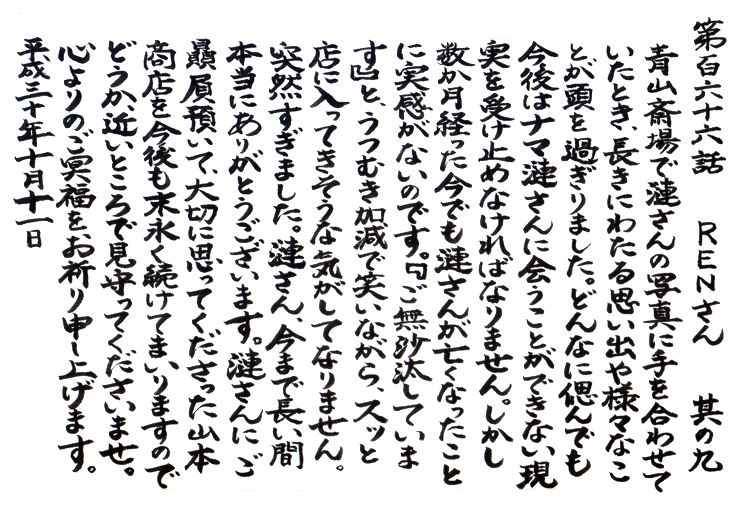 第百六十六話　RENさん　其の九
青山斎場で漣さんの写真に手を合わせて
いたとき、長きにわたる思い出や様々なこ
とが頭を過ぎりました。どんなに偲んでも
今後はナマ漣さんに会うことができない現
実を受け止めなければなりません。しかし
数か月経った今でも漣さんが亡くなったこと
に実感がないのです。『ご無沙汰していま
す』と、うつむき加減で笑いながら、スッと
店に入ってきそうな気がしてなりません。
突然すぎました。漣さん、今まで長い間
本当にありがとうございます。漣さんにご
贔屓預いて、大切に思ってくださった山本
商店を今後も末永く続けてまいりますので
どうか、近いところで見守ってくださいませ。
心よりのご冥福を、お祈り申し上げます。
平成三十年十月十一日